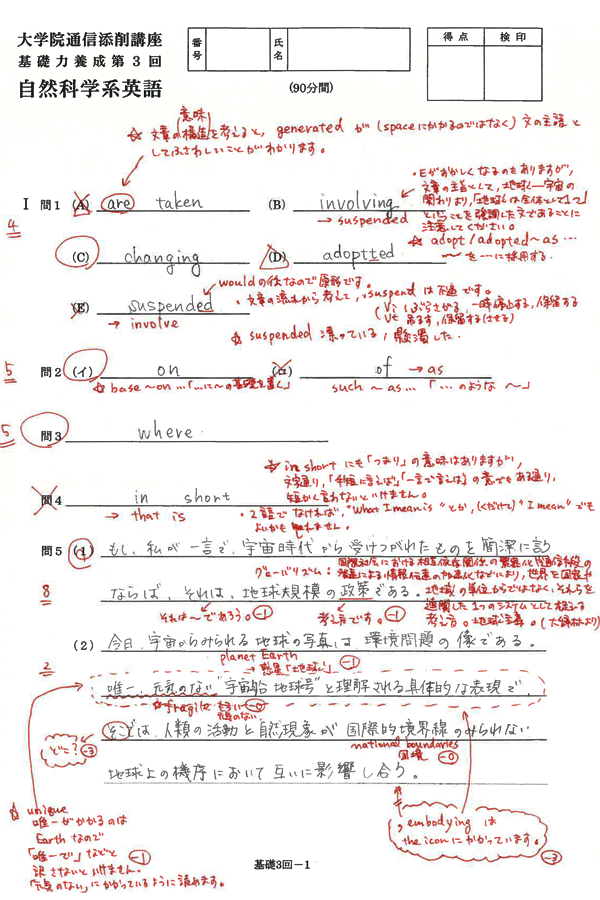 大学院通信添削講座
基礎力養成第3回
自然科学系英語
番号
氏名
得点
検印
(90分間)
(意味)
☆ 文章の構造を考えると、generated が (spaceにかかるのではなく) 文の主語と
してふさわしいことがわかります。
I 問1 (A) are taken
(B) involving
→ suspended
・Eがおかしくなるのもありますが、
文章の主旨として、地球―宇宙の
関わりより、「地球は全体として1つ」
ということを強調した文であることに
注意してください。
4
(C) changing
(D) adoptted
☆ adopt / adopted ~ as …
~を…に採用する.
(E) suspended
→ involve
wouldの後なので原形です。
・文章の流れから考えて、suspend は不適です。
(Vi ぶらさがる、一時停止する、保留する
Vt 吊るす、保留する(させる)
☆ suspended 漂っている / 懸濁した.
5
問2 (イ) on
(ロ) of → as
☆ base ~ on … 「…に~の基礎を置く」
such ~ as … 「…のような ~」
5
問3 where
☆ in short にも「つまり」の意味はありますが、
文字通り、「手短に言えば」「一言で言えば」の意でもある通り、
短かく言わないといけません。
問4 in short
→ that is
・2語でなければ、"What I mean is" とか、(くだけて) "I mean" でも
よいかもしれません。
問5 (1) もし、私が一言で、宇宙時代から受けつがれたものを簡潔に言う
グローバリズム:
国際社会における相互依存関係の緊密化や通信手段の
発達による情報伝達の加速化などにより、世界を国家や
地域の単位からではなく、それらを
連関した1つのシステムとして捉える
考え方。地球主義。
8
ならば、それは、地球規模の政策である。
それは~であろう。 -1
考え方です。 -1
(2) 今日、宇宙からみられる地球の写真は環境問題の像である。
2
planet Earth
→ 惑星「地球」 -1
唯一、元気のない"宇宙船地球号"と理解される具体的な表現で、
☆ fragile もろい -0
そこでは、人類の活動と自然現象が国際的境界線のみられない
どこ? -3
national boundaries
国境 -0
地球上の機序において互いに影響し合う。
☆ unique
唯一がかかるのは
Earth なので
「唯一で」などと
訳さないといけません。
「元気のない」にかかっているように読めます。
-1
, embodying は
the icon にかかっています。
-3
基礎3回−1